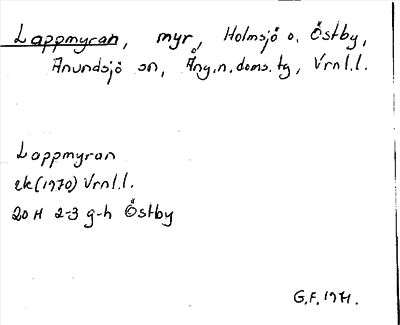 Lappmyran, myr, Holmsjö o. Östby,
Anundsjö sn, Ång.n.doms.tg, Vrnl.l.
Lappmyran
ek(1970) Vrnl.l.
20 H 2-3 g-h Östby
G.F. 1971.